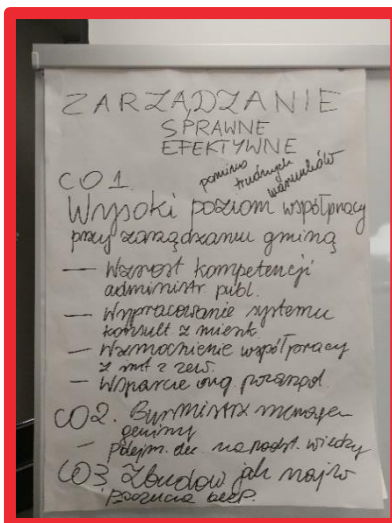 ZARZĄDZANIE
SPRAWNE
EFEKTYWNE
pomimo
trudnych
warunków
CO1.
Wysoki poziom współpracy
przy zarządzaniu gminą
— Wzrost kompetencji
administr publ.
— Wypracowanie systemu
konsult z mieszk.
— Wzmocnienie współpracy
z zew.
— Wsparcie org. pozarząd.
CO2. Burmistrz menager
gminy
— podejm. dec. na podst. wiedzy
CO3. Zbudow jak najw
poczucia bezp.